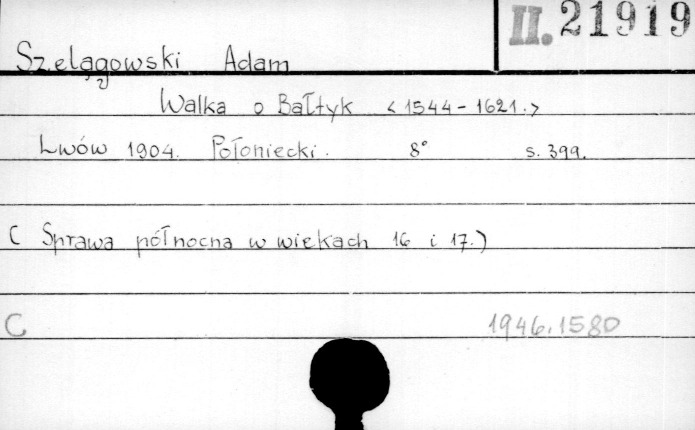 II. 21919
Szelągowski Adam
Walka o Bałtyk <1544-1621.>
Lwów 1904. Połoniecki. 8° s. 399.
( Sprawa północna w wiekach 16 i 17.)
C 1946.1580